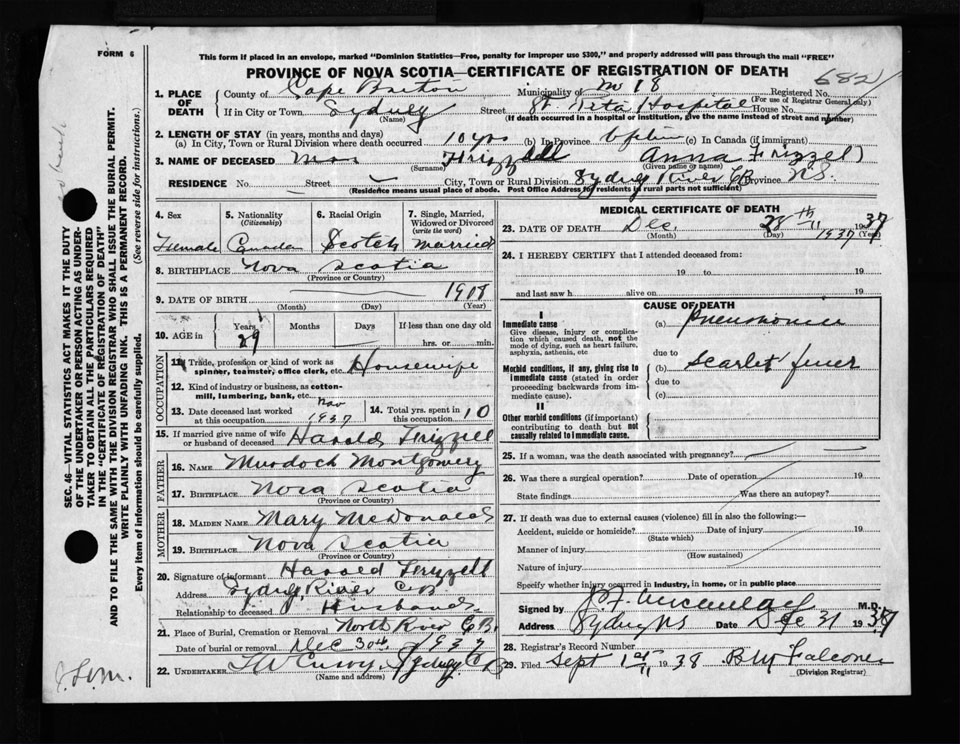 FORM 6
This form if placed in an envelope, marked "Dominion Statistics—Free, penalty for improper use $300," and properly addressed will pass through the mail "FREE"
PROVINCE OF NOVA SCOTIA—CERTIFICATE OF REGISTRATION OF DEATH
682
SEC. 46—VITAL STATISTICS ACT MAKES IT THE DUTY
OF THE UNDERTAKER OR PERSON ACTING AS UNDER-
TAKER TO OBTAIN ALL THE PARTICULARS REQUIRED
IN THE "CERTIFICATE OF REGISTRATION OF DEATH"
AND TO FILE THE SAME WITH THE DIVISION REGISTRAR WHO SHALL ISSUE THE BURIAL PERMIT.
WRITE PLAINLY WITH UNFADING INK. THIS IS A PERMANENT RECORD.
Every item of information should be carefully supplied. (See reverse side for instructions.)
1. PLACE OF DEATH
County of Cape Breton Municipality of No 18 Registered No.
(For use of Registrar General only)
If in City or Town, Sydney Street St. Rita Hospital House No.
(Name) (If death occurred in a hospital or institution, give the name instead of street and number)
2. LENGTH OF STAY (in years, months and days)
(a) In City, Town or Rural Division where death occurred 10 yrs (b) In Province (c) In Canada (if immigrant)
3. NAME OF DECEASED Mrs Frizzell Anna Frizzel)
(Surname) (Given name or names)
RESIDENCE No. Street City, Town or Rural Division Sydney River CB Province N.S.
(Residence means usual place of abode. Post Office Address for residents in rural parts not sufficient)
4. Sex 5. Nationality (Citizenship) 6. Racial Origin 7. Single, Married, Widowed or Divorced (write the word)
Female Canada Scotch Married
8. BIRTHPLACE Nova Scotia
(Province or Country)
9. DATE OF BIRTH 1908
(Month) (Day) (Year)
10. AGE in Years Months Days If less than one day old
29 hrs. or min.
OCCUPATION
11. Trade, profession or kind of work as
spinner, teamster, office clerk, etc. Housewife
12. Kind of industry or business, as cotton-
mill, lumbering, bank, etc.
13. Date deceased last worked at this occupation Nov 1937 14. Total yrs. spent in this occupation 10
15. If married give name of wife or husband of deceased Harold Frizzell
FATHER
16. NAME Murdoch Montgomery
17. BIRTHPLACE Nova Scotia
(Province or Country)
MOTHER
18. MAIDEN NAME Mary McDonald
19. BIRTHPLACE Nova Scotia
(Province or Country)
20. Signature of informant Harold Frizzell
Address Sydney River C.B.
Relationship to deceased Husband
21. Place of Burial, Cremation or Removal North River C.B.
Date of burial or removal Dec 30th 1937
22. UNDERTAKER Sydney C.B.
(Name and address)
MEDICAL CERTIFICATE OF DEATH
23. DATE OF DEATH Dec. 28th 1937
(Month) (Day) 1937 (Year)
24. I HEREBY CERTIFY that I attended deceased from:
19 to 19
and last saw h alive on 19
CAUSE OF DEATH
I
Immediate cause
Give disease, injury or complica-
tion which caused death, not the
mode of dying, such as heart failure,
asphyxia, asthenia, etc
(a) Pneumonia
due to
Morbid conditions, if any, giving rise to
immediate cause (stated in order
proceeding backwards from im-
mediate cause).
(b) Scarlet fever
due to
(c)
II
Other morbid conditions (if important)
contributing to death but not
causally related to immediate cause.
25. If a woman, was the death associated with pregnancy?
26. Was there a surgical operation? Date of operation 19
State findings Was there an autopsy?
27. If death was due to external causes (violence) fill in also the following:—
Accident, suicide or homicide? Date of injury 19
(State which)
Manner of injury
(How sustained)
Nature of injury
Specify whether injury occurred in industry, in home, or in public place
Signed by M.D.
Address Sydney NS Date Dec 31 1937
28. Registrar's Record Number
29. Filed Sept 1st 1938 B M Falconer
(Division Registrar)